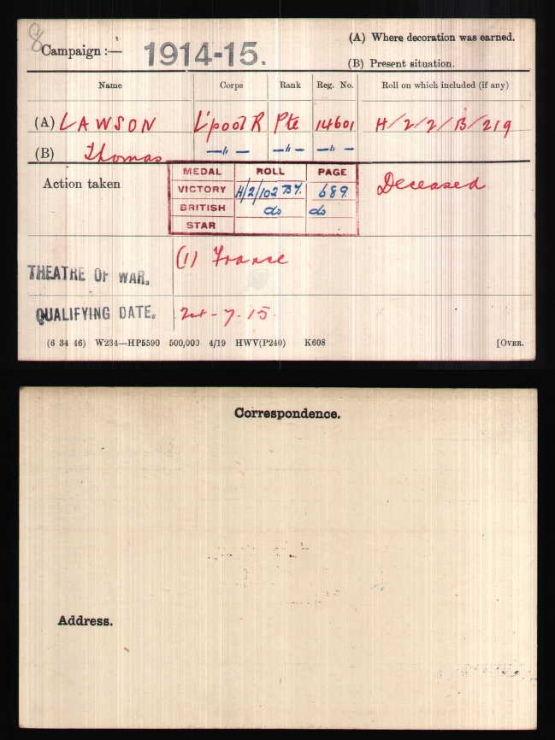 8
Campaign :— 1914-15. (A) Where decoration was earned.
(B) Present situation.
Name Corps Rank Reg. No. Roll on which included (if any)
(A) LAWSON L'pool R Pte 14601 H/2/2/B/219
(B) Thomas —"— —"— —"—
Action taken MEDAL ROLL PAGE Deceased
VICTORY H/2/102 B7. 689
BRITISH do do
STAR
THEATRE OF WAR. (1) France
QUALIFYING DATE. -7-15
(6 34 46) W234—HP5590 500,000 4/19 HWV(P240) K608 [OVER.
Correspondence.
Address.